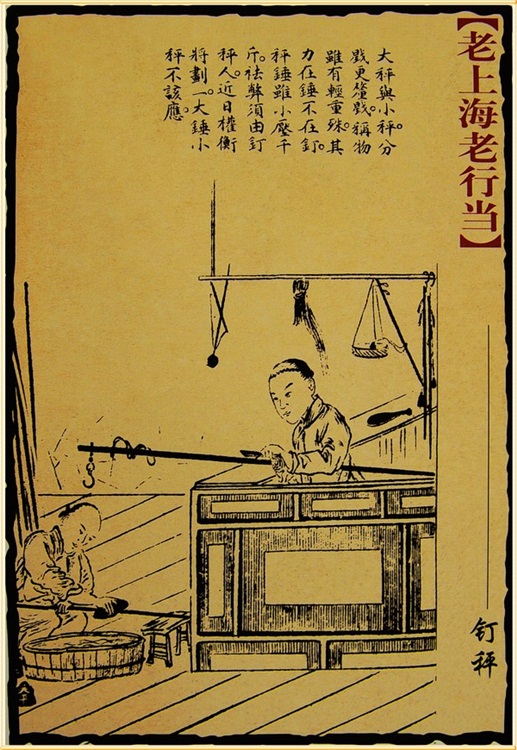 【老上海老行当】
大秤與小秤。分
戥更釐戥。稱物
雖有輕重殊。其
力在錘不在釘。
秤錘雖小壓千
斤。祛弊須由釘
秤人。近日權衡
將劃一。大錘小
秤不該應。
釘秤